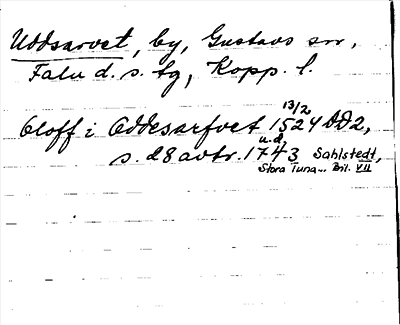 Uddsarvet, by, Gustavs sn,
Falu d. s. tg, Kopp. l.
13/2
Oloff i Oddesarfvet 1524 DD2,
u.d.
s. 28 avtr. 1743 Sahlstedt,
Stora Tuna... Bil. VII